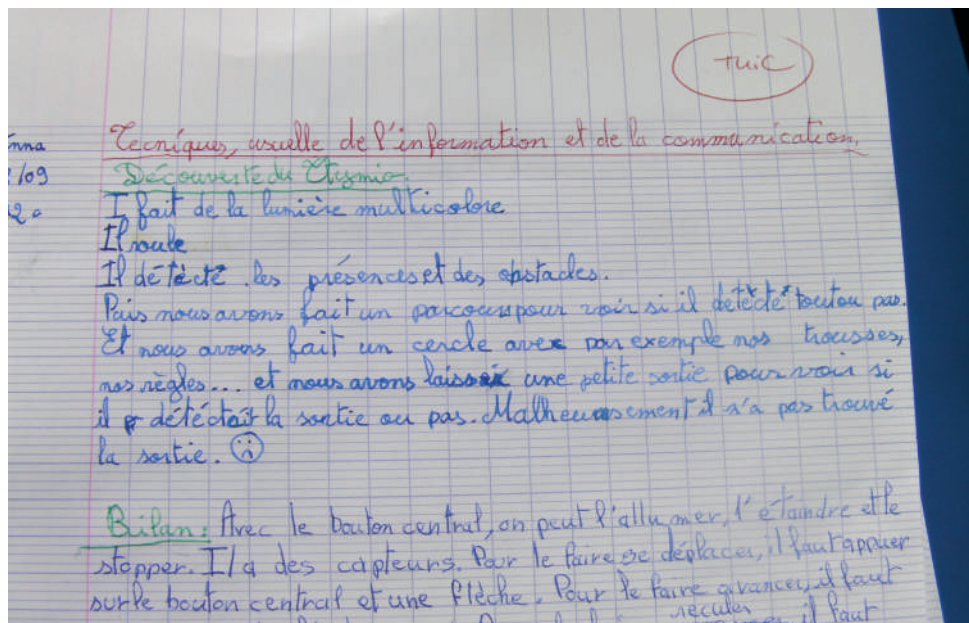 tuic
Tecniques, usuelle de l'information et de la communication,
nna
Découverte du Thymio.
/09
I fait de la lumière multicolore
2a
Il roule
Il détécté les présences et des obstacles.
Puis nous avons fait un parcours pour voir si il détécte toutou pas.
Et nous avons fait un cercle avex par exemple nos trousses,
nos règles... et nous avons laissé une petite sortie pour voir si
il détéctait la sortie ou pas. Malheureusement il n'a pas trouvé
la sortie.
Bilan: Avec le bouton central, on peut l'allumer, l'étaindre et le
stopper. Il a des capteurs. Pour le faire se déplacer, il faut appuer
sur le bouton central et une flèche. Pour le faire avancer, il faut
reculer il faut